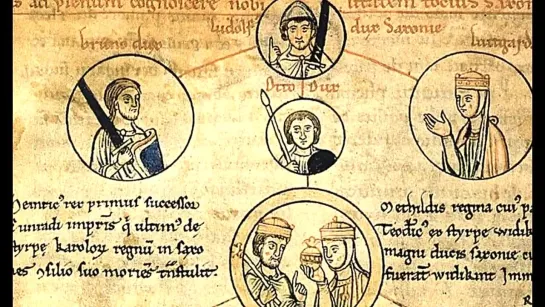 s aci plenum cognoscere nobi litatem tocius Saxon
Ludolf dux Saxonie
brun dux
Liutgard
Otto Dux
Heinric' rex primus successor
Cunradi impris q ultim' de
styrpe Karoloy regnum in saxo
nes ɔsilio suo mories tnstulit.
Methildis regina cui' pa
Teodric' ex styrpe widik
magni ducis saxonie cu
fuerant widikint Imm